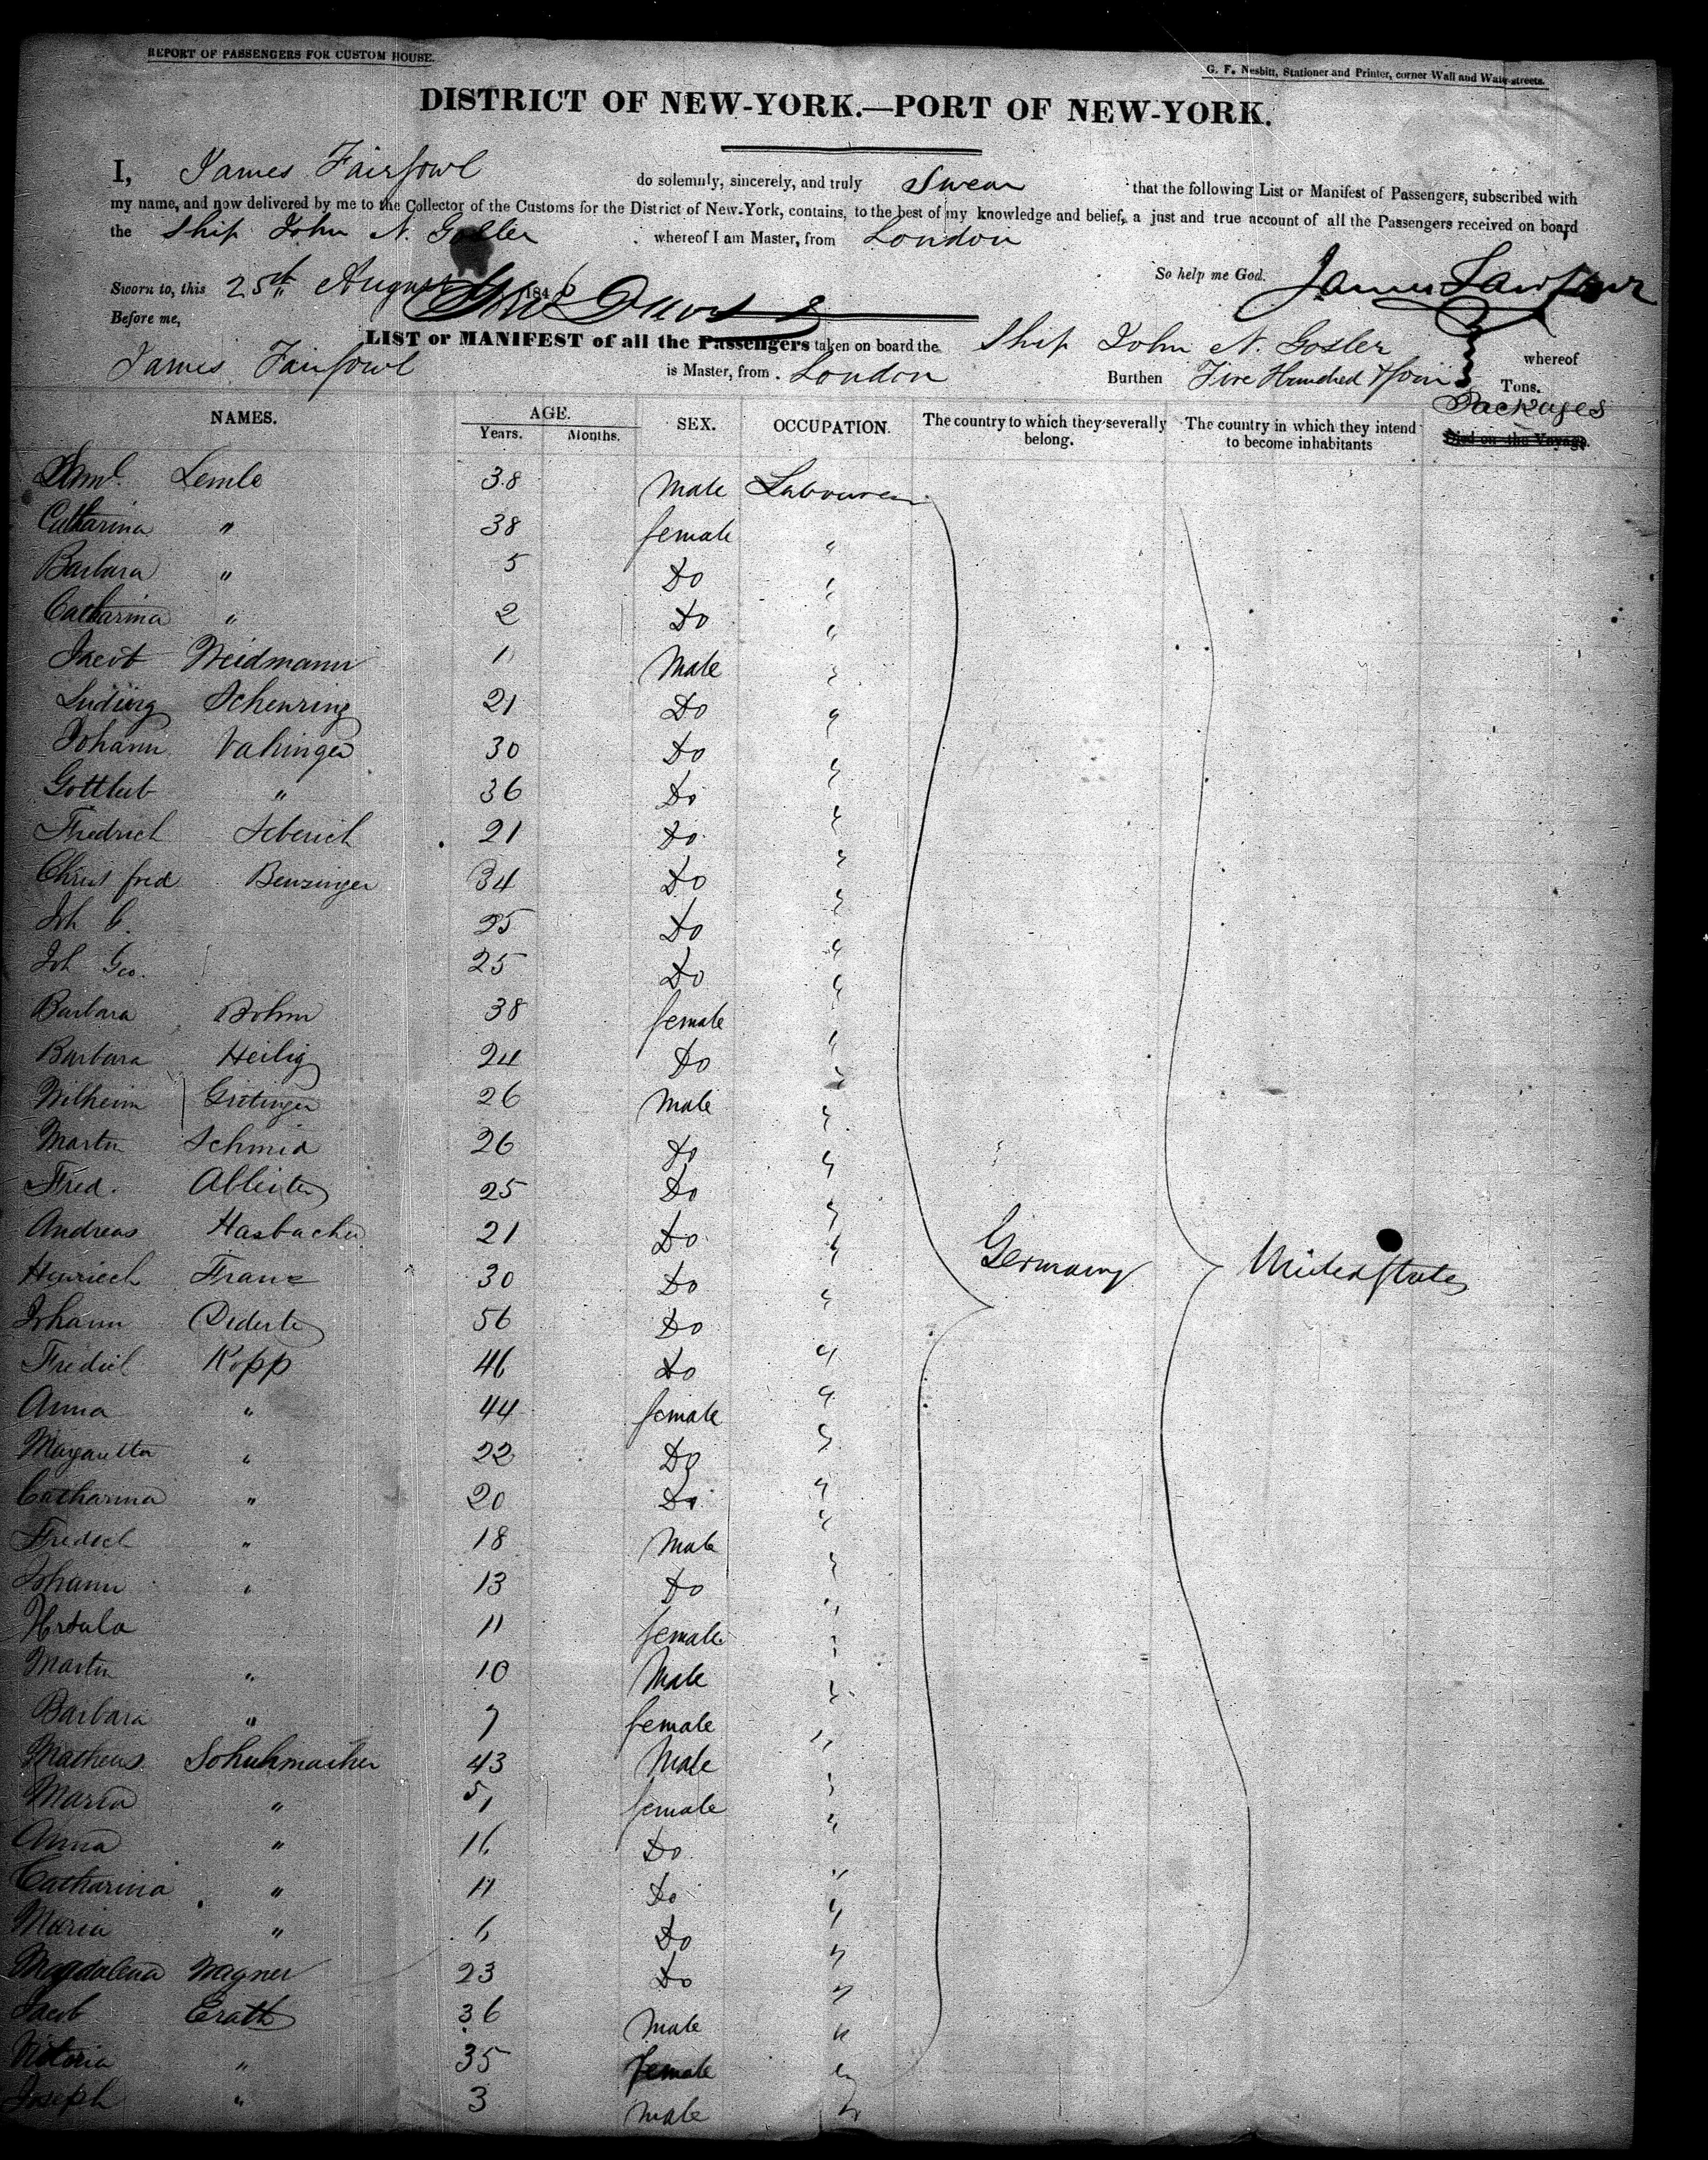 REPORT OF PASSENGERS FOR CUSTOM HOUSE.
G. F. Nesbitt, Stationer and Printer, corner Wall and Water-streets.
DISTRICT OF NEW-YORK.—PORT OF NEW-YORK.
I, James Fairfowl do solemnly, sincerely, and truly Swear that the following List or Manifest of Passengers, subscribed with
my name, and now delivered by me to the Collector of the Customs for the District of New-York, contains, to the best of my knowledge and belief, a just and true account of all the Passengers received on board
the Ship John N. Gosler whereof I am Master, from London
Sworn to, this 25th August 1846 So help me God. James Fairfowl
Before me,
LIST or MANIFEST of all the Passengers taken on board the Ship John N. Gosler whereof
James Fairfowl is Master, from London Burthen Five Hundred & four Tons.
NAMES. AGE. SEX. OCCUPATION. The country to which they severally belong. The country in which they intend to become inhabitants Packages Died on the Voyage.
Years. Months.
Lemle 38 Male Labourer
Catharina " 38 female "
Barbara " 5 Do "
Catharina " 2 Do "
Jacob Weidmann 1 Male "
Ludwig Scheuring 21 Do "
Johann Vahinger 30 Do "
Gottlieb " 36 Do "
Fredrich Seberich 21 Do "
Christ fred Benzinger 34 Do "
Joh G. 25 Do "
Joh Geo. 25 Do "
Barbara Bohm 38 female "
Barbara Heilig 24 Do "
Wilheim Grotinger 26 Male "
Martin Schmid 26 Do "
Fred. Ableiter 25 Do "
Andreas Hasbacher 21 Do " Germany United States
Henriech Franz 30 Do "
Johann Dederle 56 Do "
Fredich Kopp 46 Do "
Anna " 44 female "
Margaretta " 22 Do "
Catharina " 20 Do "
Fredich " 18 Male "
Johann " 13 Do "
Ursula 11 female "
Martin " 10 Male "
Barbara " 7 female "
Matheus Schuhmacher 43 Male "
Maria " 51 female "
Anna " 16 Do "
Catharina " 11 Do "
Maria " 6 Do "
Magdalena Wagner 23 Do "
Jacob Erath 36 Male "
Victoria " 35 female "
Joseph " 3 male "